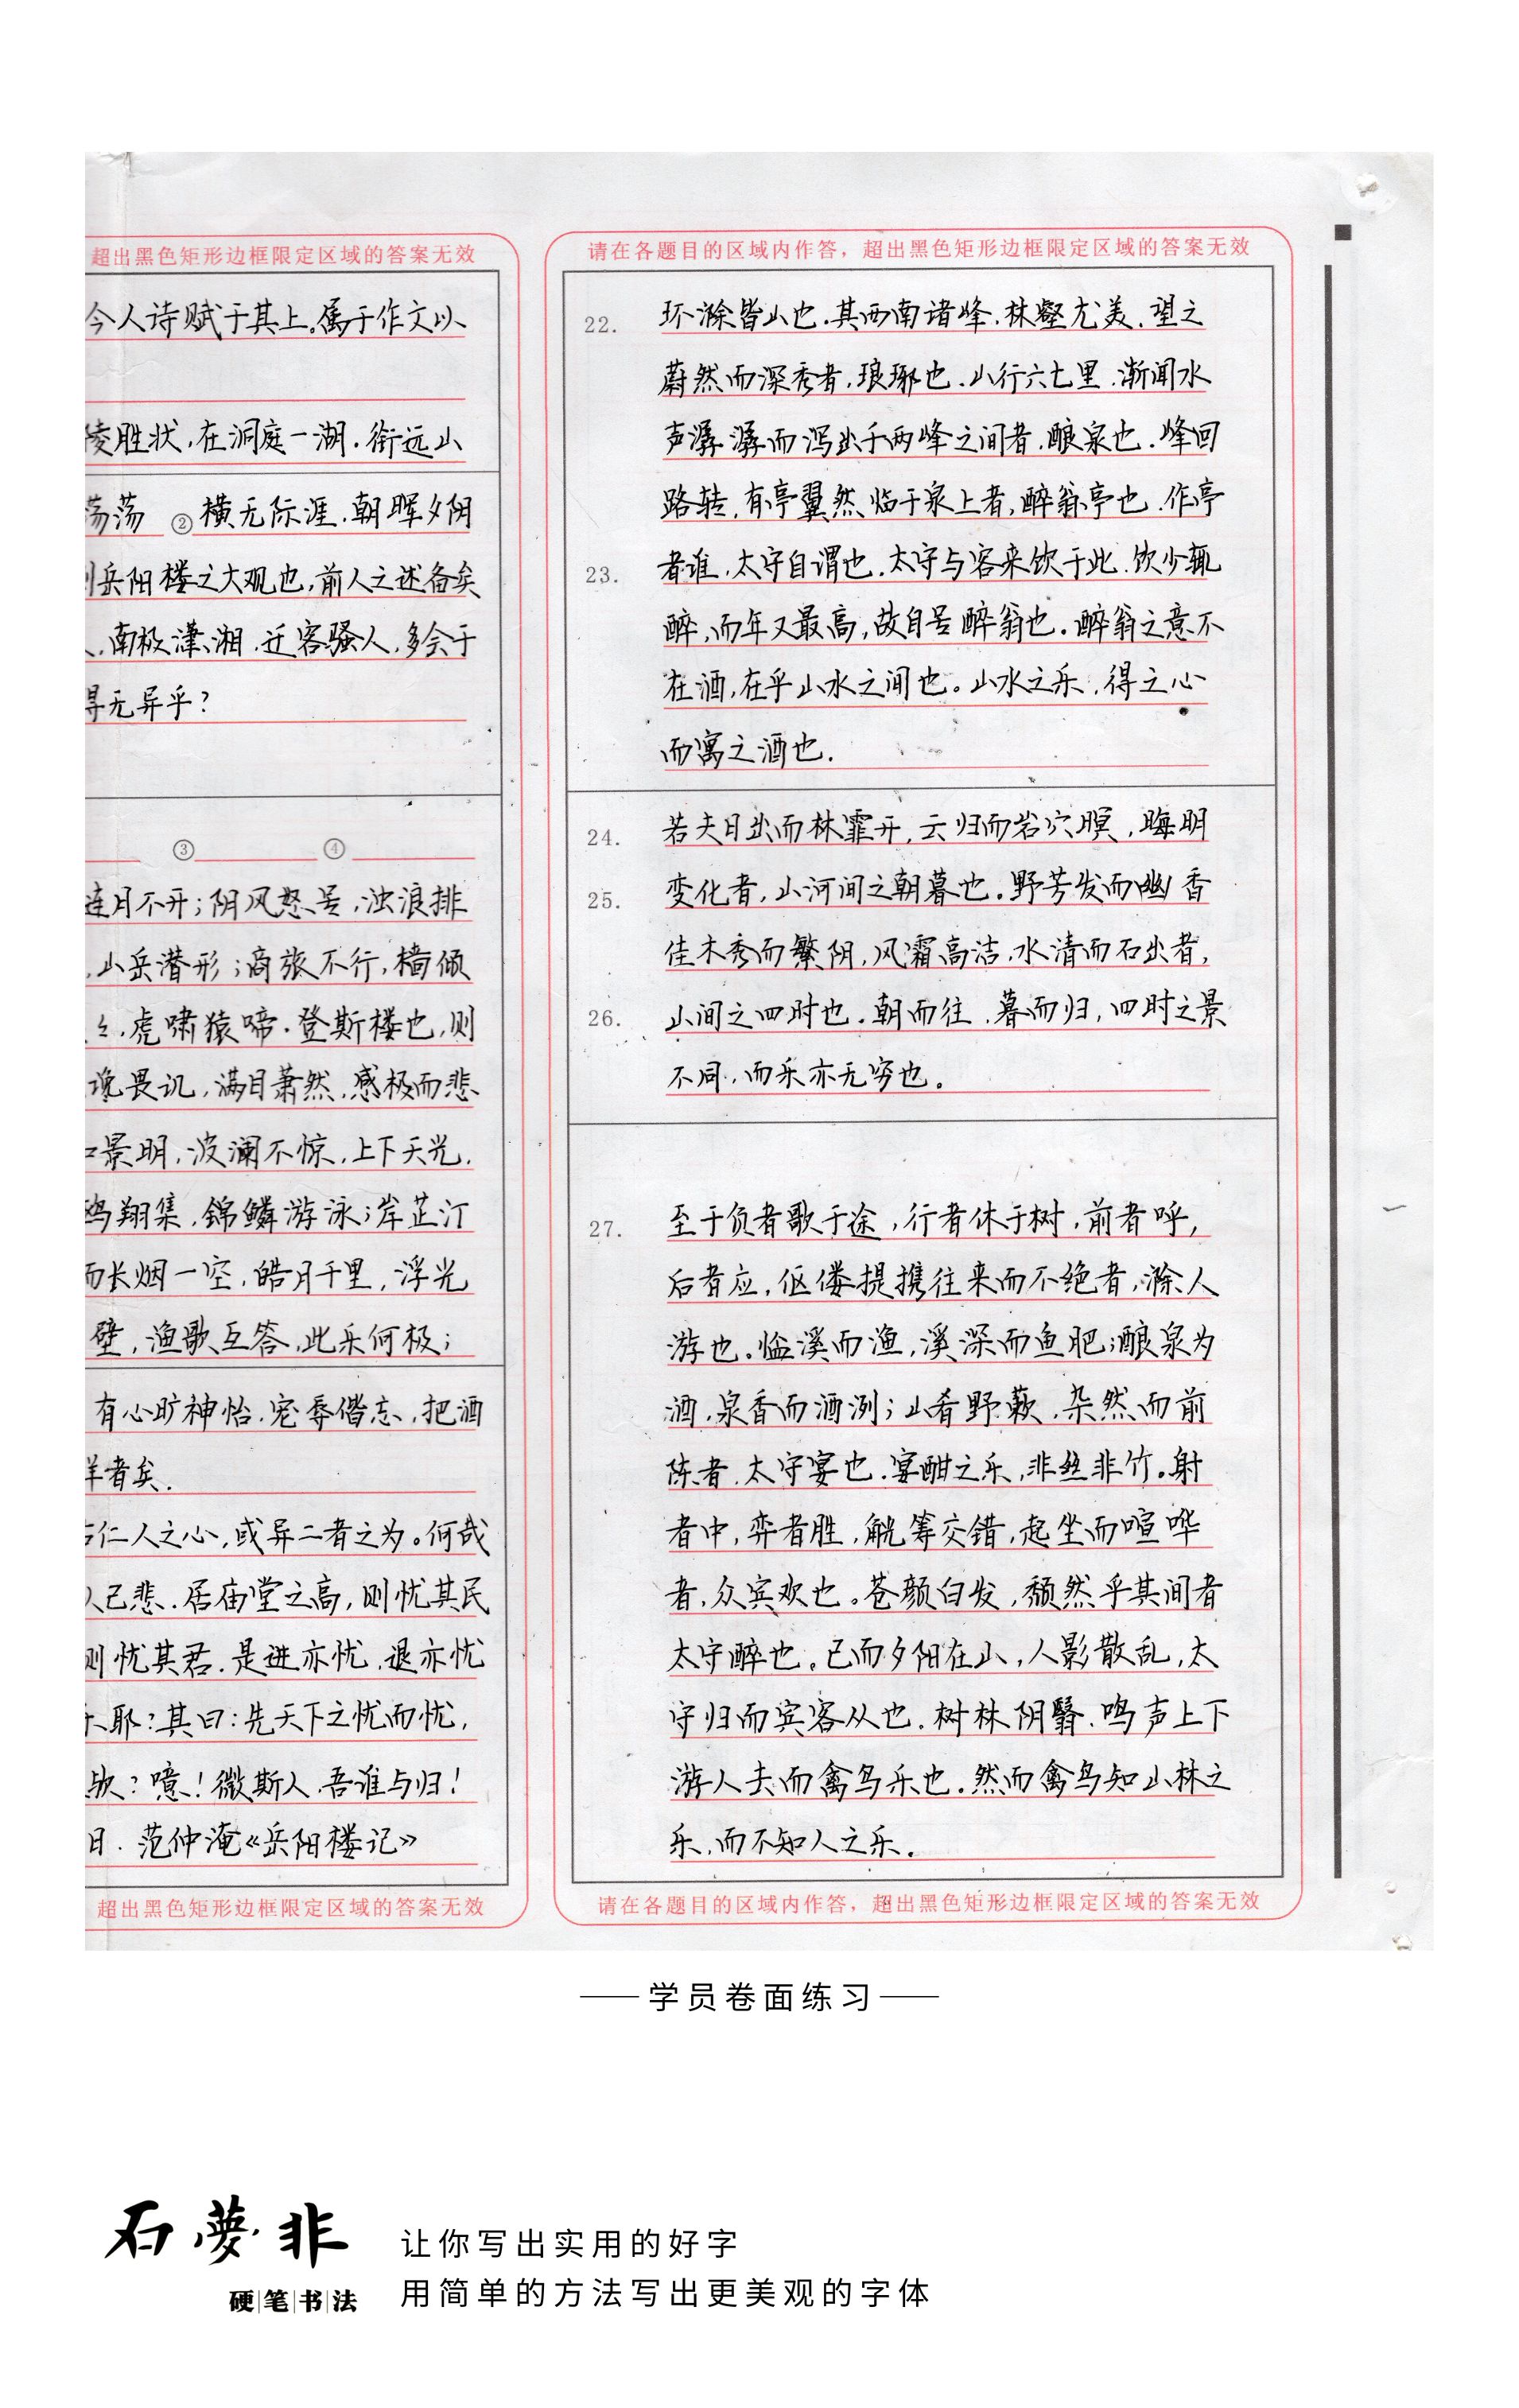 超出黑色矩形边框限定区域的答案无效
今人诗赋于其上。属于作文以
陵胜状,在洞庭一湖.衔远山
荡荡 ②横无际涯.朝晖夕阴
则岳阳楼之大观也,前人之述备矣
,南极潇湘.迁客骚人,多会于
得无异乎?
③ ④
连月不开;阴风怒号,浊浪排
,山岳潜形;商旅不行,樯倾
,虎啸猿啼.登斯楼也,则
谗畏讥,满目萧然,感极而悲
和景明,波澜不惊,上下天光,
鸥翔集,锦鳞游泳;岸芷汀
而长烟一空,皓月千里,浮光
璧,渔歌互答,此乐何极;
有心旷神怡,宠辱偕忘,把酒
洋者矣.
古仁人之心,或异二者之为。何哉
以己悲.居庙堂之高,则忧其民
则忧其君.是进亦忧,退亦忧
乐耶?其曰:先天下之忧而忧,
欤?噫!微斯人.吾谁与归!
日.范仲淹《岳阳楼记》
超出黑色矩形边框限定区域的答案无效
请在各题目的区域内作答,超出黑色矩形边框限定区域的答案无效
22. 环滁皆山也.其西南诸峰.林壑尤美.望之
蔚然而深秀者,琅琊也.山行六七里.渐闻水
声潺潺而泻出于两峰之间者.酿泉也.峰回
路转.有亭翼然临于泉上者,醉翁亭也.作亭
23. 者谁.太守自谓也.太守与客来饮于此.饮少辄
醉,而年又最高,故自号醉翁也.醉翁之意不
在酒,在乎山水之间也。山水之乐.得之心
而寓之酒也.
24. 若夫日出而林霏开,云归而岩穴暝,晦明
25. 变化者,山河间之朝暮也.野芳发而幽香
佳木秀而繁阴,风霜高洁.水清而石出者,
26. 山间之四时也.朝而往.暮而归,四时之景
不同,而乐亦无穷也。
27. 至于负者歌于途,行者休于树,前者呼,
后者应,伛偻提携往来而不绝者,滁人
游也.临溪而渔,溪深而鱼肥;酿泉为
酒.泉香而酒洌;山肴野蔌.杂然而前
陈者.太守宴也.宴酣之乐,非丝非竹。射
者中,弈者胜,觥筹交错,起坐而喧哗
者,众宾欢也。苍颜白发,颓然乎其间者
太守醉也.已而夕阳在山,人影散乱,太
守归而宾客从也.树林阴翳.鸣声上下
游人去而禽鸟乐也.然而禽鸟知山林之
乐,而不知人之乐.
请在各题目的区域内作答,超出黑色矩形边框限定区域的答案无效
学员卷面练习
石夢非
硬笔书法
让你写出实用的好字
用简单的方法写出更美观的字体